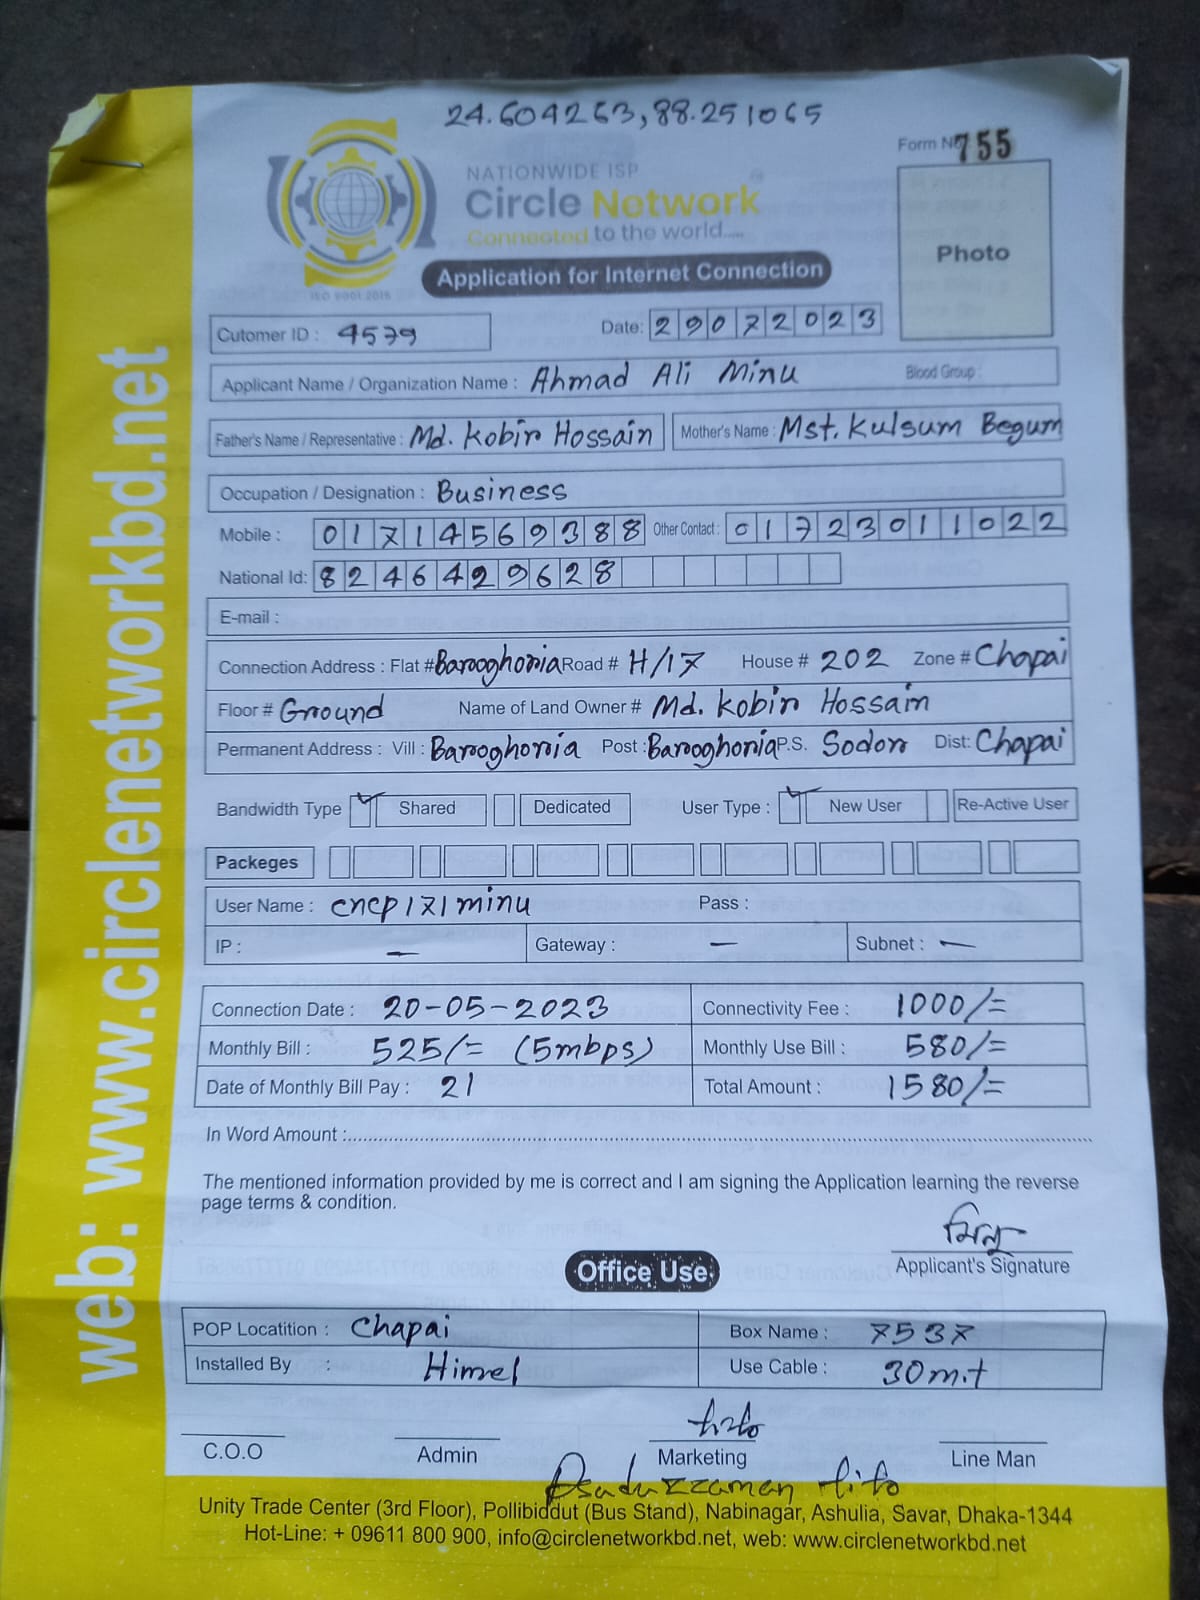 24.604263,88.251065
Form No 755
NATIONWIDE ISP
Circle Network
Connected to the world.....
ISO 9001:2015
Photo
Application for Internet Connection
Cutomer ID : 4579 Date: 29072023
Applicant Name / Organization Name : Ahmad Ali Minu Blood Group :
Father's Name / Representative : Md. Kobir Hossain Mother's Name : Mst. Kulsum Begum
Occupation / Designation : Business
Mobile : 01714569388 Other Contact : 01723011022
National Id: 8246429628
E-mail :
Connection Address : Flat # Barooghoria Road # H/17 House # 202 Zone # Chapai
Floor # Ground Name of Land Owner # Md. Kobir Hossain
Permanent Address : Vill : Barooghoria Post : Barooghoria P.S. Sodor Dist: Chapai
Bandwidth Type Shared Dedicated User Type : New User Re-Active User
Packeges
User Name : cncp171minu Pass :
IP : — Gateway : — Subnet : —
Connection Date : 20-05-2023 Connectivity Fee : 1000/=
Monthly Bill : 525/= (5mbps) Monthly Use Bill : 580/=
Date of Monthly Bill Pay : 21 Total Amount : 1580/=
In Word Amount :
The mentioned information provided by me is correct and I am signing the Application learning the reverse
page terms & condition.
মিনু
Applicant's Signature
Office Use
POP Locatition : Chapai Box Name : 7537
Installed By : Himel Use Cable : 30m.t
C.O.O Admin Marketing Line Man
Asaduzzaman
Unity Trade Center (3rd Floor), Pollibiddut (Bus Stand), Nabinagar, Ashulia, Savar, Dhaka-1344
Hot-Line: + 09611 800 900, info@circlenetworkbd.net, web: www.circlenetworkbd.net
web: www.circlenetworkbd.net